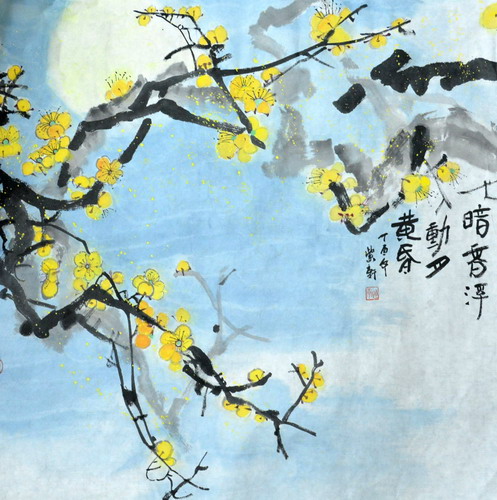 暗香浮
動月
黄昏
丁酉年
紫